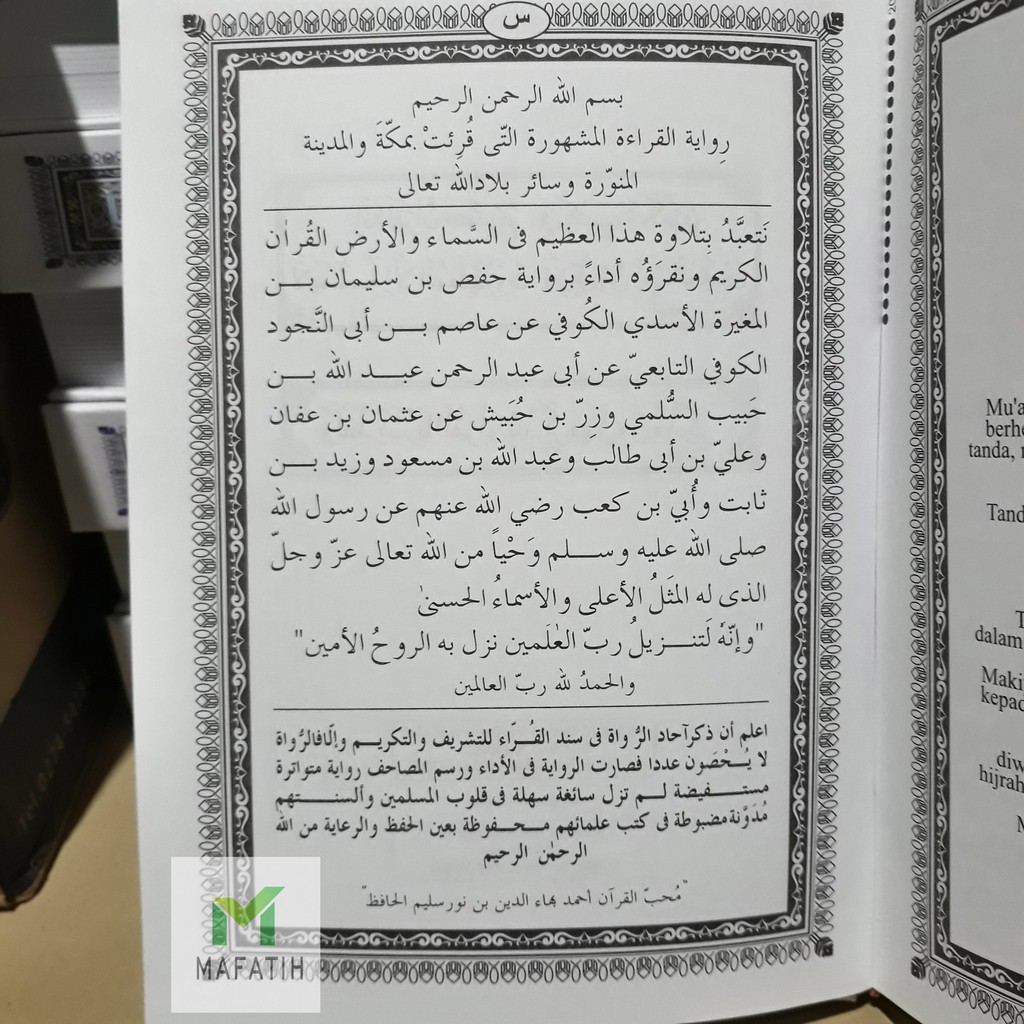 س
بسم الله الرحمن الرحيم
رِواية القراءة المشهورة التّى قُرِئتْ بمكّةَ والمدينة
المنوّرة وسائر بلادالله تعالى
نَتعبَّدُ بِتلاوة هذا العظيم فى السَّماء والأرض القُراٰن
الكريم ونقرَؤُه أداءً برواية حفص بن سليمان بن
المغيرة الأسدي الكُوفي عن عاصم بن أبى النَّجود
الكوفي التابعيّ عن أبى عبد الرحمن عبد الله بن
حَبيب السُّلمي وزِرّ بن حُبَيش عن عثمان بن عفان
وعليّ بن أبى طالب وعبد الله بن مسعود وزيد بن
ثابت وأُبيّ بن كعب رضي الله عنهم عن رسول الله
صلى الله عليه وسلم وَحْياً من الله تعالى عزّ وجلّ
الذى له المثَلُ الأعلى والأسماءُ الحسنىٰ
"وإنّهٗ لَتنزيلُ ربّ العٰلَمين نزل به الروحُ الأمين"
والحمدُ لله ربّ العالمين
اعلم أن ذكرآحاد الرُّواة فى سند القُرّاء للتشريف والتكريم وإلّافالرُّواة
لا يُحْصَون عددا فصارت الرواية فى الأداء ورسم المصاحف رواية متواترة
مستفيضة لم تزل سائغة سهلة فى قلوب المسلمين وألسنتهم
مُدَوَّنة مضبوطة فى كتب علمائهم محفوظة بعين الحفظ والرعاية من الله
الرحمٰن الرحيم
"مُحبّ القرآن أحمد بهاء الدين بن نورسليم الحافظ"
MAFATIH
Mu'a
berhe
tanda,
Tand
dalam
Maki
kepad
diw
hijrah